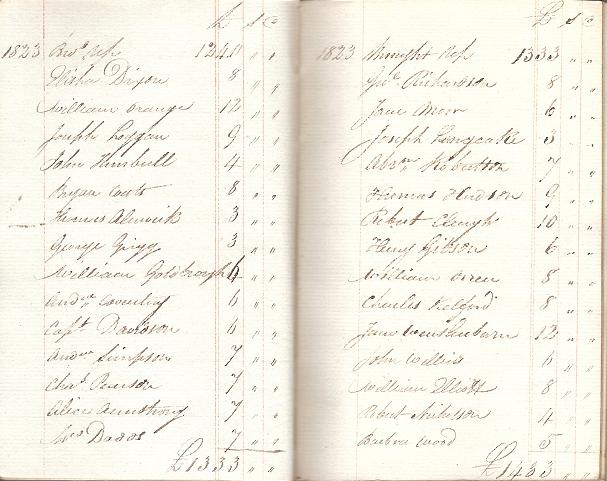 £ s d
1823 Bro.t up 1241 " "
Elisha Dixon 8 " "
William Orange 12 " "
Joseph 9 " "
John 4 " "
Bryan Coats 8 " "
Thomas Alnwick 3 " "
George Grigg 3 " "
William Goldbrough 6 " "
Andrw 6 " "
Capt. Davidson 6 " "
Andrw Simpson 7 " "
Chas. Pearson 7 " "
Alice Armstrong 7 " "
Mrs 7 " "
£1333 " "
£ s d
1823 Brought up 1333 " "
Jno. Richardson 8 " "
Jane Moor 6 " "
Joseph Longcake 3 " "
Abrm. Robertson 7 " "
Thomas Hudson 9 " "
Robert Clough 10 " "
Henry Gibson 6 " "
William Green 8 " "
Charles 8 " "
Jane 12 " "
John Willis 6 " "
William Elliott 8 " "
Robert Nicholson 4 " "
Barbara Wood 5 " "
£1433 " "